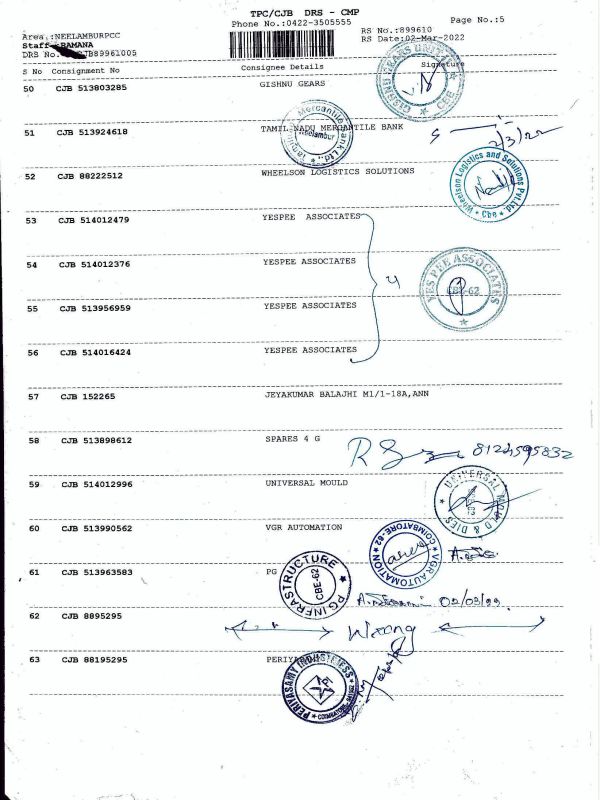 TPC/CJB DRS - CMP
Phone No.:0422-3505555
Page No.:5
Area :NEELAMBURPCC
Staff RAMANA
DRS No. CJB89961005
RS No.:899610
RS Date:02-Mar-2022
S No Consignment No Consignee Details Signature
50 CJB 513803285 GISHNU GEARS
GISHNU GEARS UNIT CBE
51 CJB 513924618 TAMIL NADU MERCANTILE BANK
Mercantile Bank Ltd. Neelambur
2/3/22
52 CJB 88222512 WHEELSON LOGISTICS SOLUTIONS
Wheelson Logistics and Solutions Pvt Ltd Cbe
53 CJB 514012479 YESPEE ASSOCIATES
54 CJB 514012376 YESPEE ASSOCIATES
4
YES PEE ASSOCIATES CBE-62
55 CJB 513956959 YESPEE ASSOCIATES
56 CJB 514016424 YESPEE ASSOCIATES
57 CJB 152265 JEYAKUMAR BALAJHI M1/1-18A,ANN
58 CJB 513898612 SPARES 4 G
59 CJB 514012996 UNIVERSAL MOULD
UNIVERSAL MOULD & DIES
60 CJB 513990562 VGR AUTOMATION
VGR AUTOMATION COIMBATORE-62
61 CJB 513963583 PG
PG INFRASTRUCTURE CBE-62
62 CJB 8895295
Wrong
63 CJB 88195295 PERIYA
PERIYASAMY INDUSTRIESS COIMBATORE